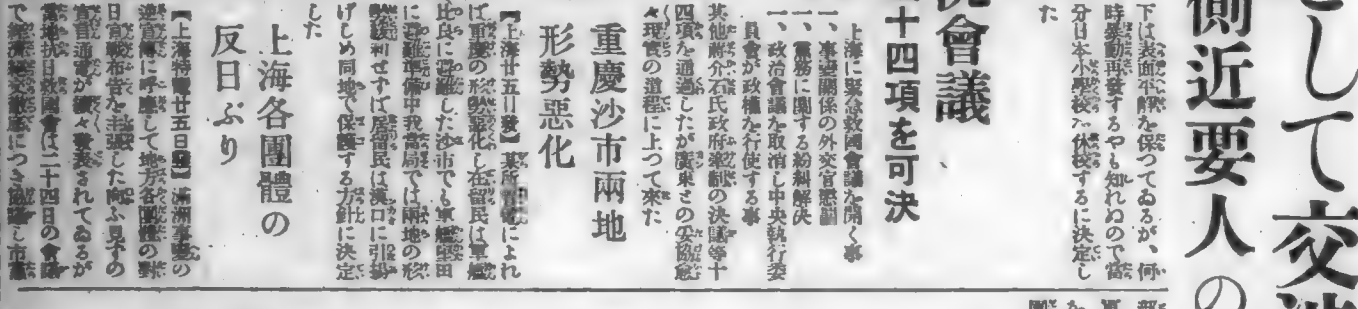 として交渉
側近要人の
下は表面平靜を保つてゐるが、何
時暴動再發するやも知れぬので當
分日本小學校は休校するに決定し
た
會議
十四項を可決
上海に緊急救國會議を開く事
一、事變關係の外交官懲罰
一、黨務に關する紛糾解決
一、政治會議を取消し中央執行委
員會が政權を行使する事
其他蔣介石氏政府牽制の決議等十
四項を通過したが廣東との妥協愈
々現實の道程に上つて來た
重慶沙市兩地
形勢惡化
【上海廿五日發】某所 によれ
ば重慶の形勢惡化し在留民は軍艦
比良に避難した沙市でも軍艦堅田
に避難準備中我當局では兩地の形
勢緩和せずば居留民は漢口に引揚
げしめ同地で保護する方針に決定
した
上海各團體の
反日ぶり
【上海特電廿五日發】滿洲事變の
逆宣傳に呼應して地方各團體の對
日宣戰布告を主張した向ふ見ずの
宣言通電が續々發表されてゐるが
當地抗日救國會は二十四日の會議
で經濟絕交徹底につき協議し市黨